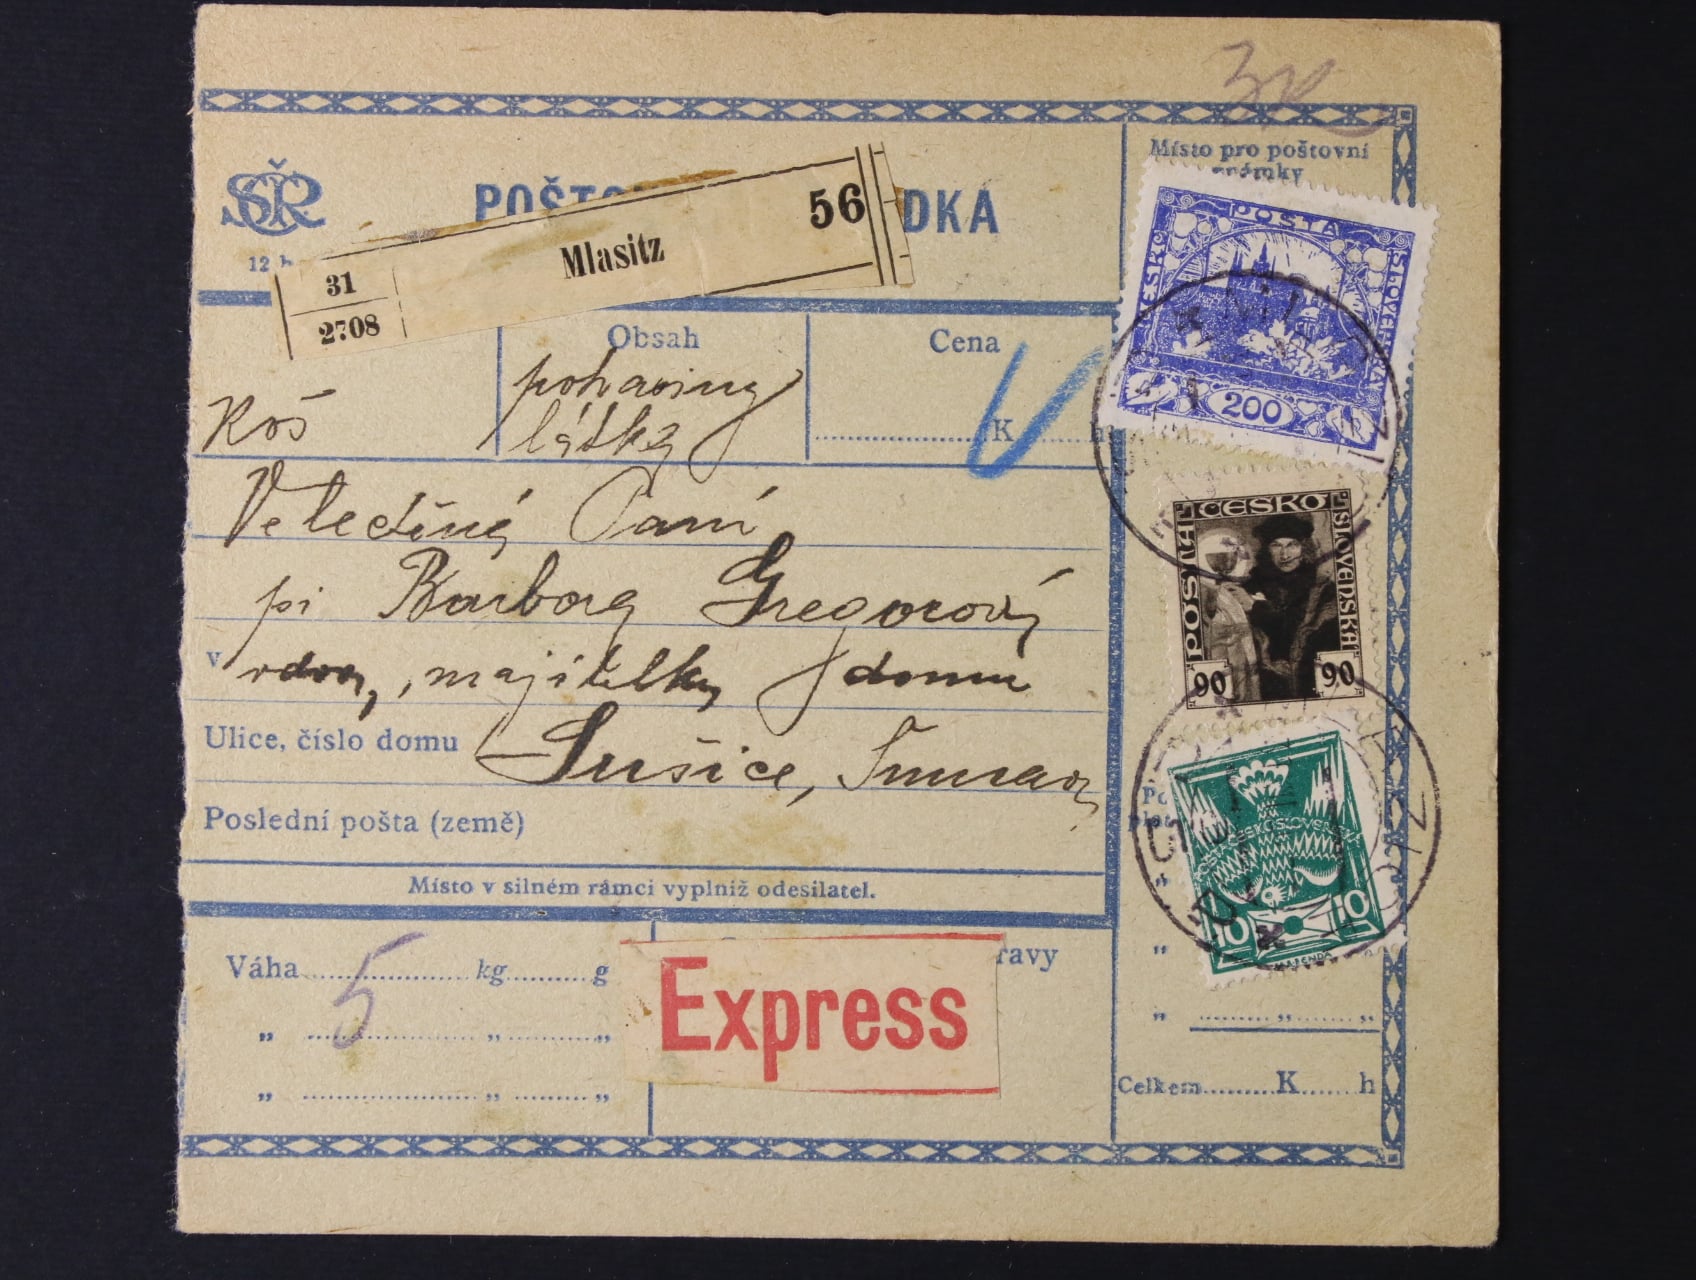 3K
Místo pro poštovní
známky
ČSR
POŠTO DKA
56
Mlasitz
31
2708
12 h
Obsah
Cena
Koš
potraviny
látky
K h
Velectěná Paní
pí Barbora Gregorová
v vdova, majitelka domu
Ulice, číslo domu
Sušice, Šumava
Poslední pošta (země)
Místo v silném rámci vyplniž odesilatel.
Váha kg g
5
„ „ „
„ „ „
ravy
Express
POŠTA
ČESKO
SLOVENSKÁ
200
POŠTA ČESKO SLOVENSKÁ
90 90
ČESKOSLOVENSKÁ
10 10
„
„
„ „ „
Celkem K h